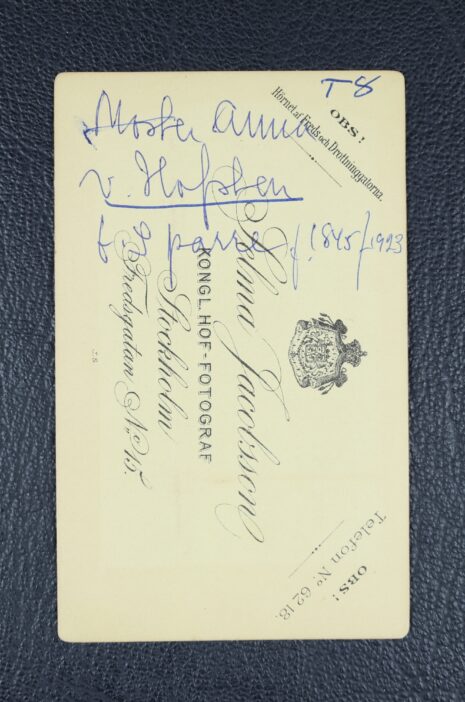 T 8
Moster Anna
v. Hofsten
f. 1845/1923
OBS!
Hörnet af Freds och Drottninggatorna.
Selma Jacobsson
KONGL. HOF-FOTOGRAF
Stockholm
Fredsgatan No 15.
OBS!
Telefon No 62 18.